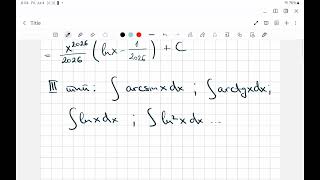 Title
= x^2026/2026 (lnx - 1/2026) + C
III тип: ∫ arcsinx dx ; ∫ arctgx dx;
∫ lnx dx ; ∫ ln²x dx ...